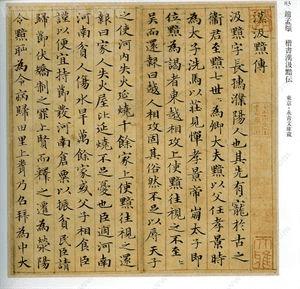 83 趙孟頫 楷書漢汲黯伝
東京・永青文庫蔵
漢汲黯傳
汲黯字長孺濮陽人也其先有寵於古之
衛君至黯七世世為卿大夫黯以父任孝景時
為太子洗馬以莊見憚孝景帝崩太子即
位黯為謁者東越相攻上使黯往視之不至至
吳而還報曰越人相攻固其俗然不足以辱天子
之使河內失火延燒千餘家上使黯往視之還
報曰家人失火屋比延燒不足憂也臣過河南
河南貧人傷水旱萬餘家或父子相食臣
謹以便宜持節發河南倉粟以振貧民臣請
歸節伏矯制之罪上賢而釋之遷為滎陽
令黯恥為令病歸田里上聞乃召拜為中大